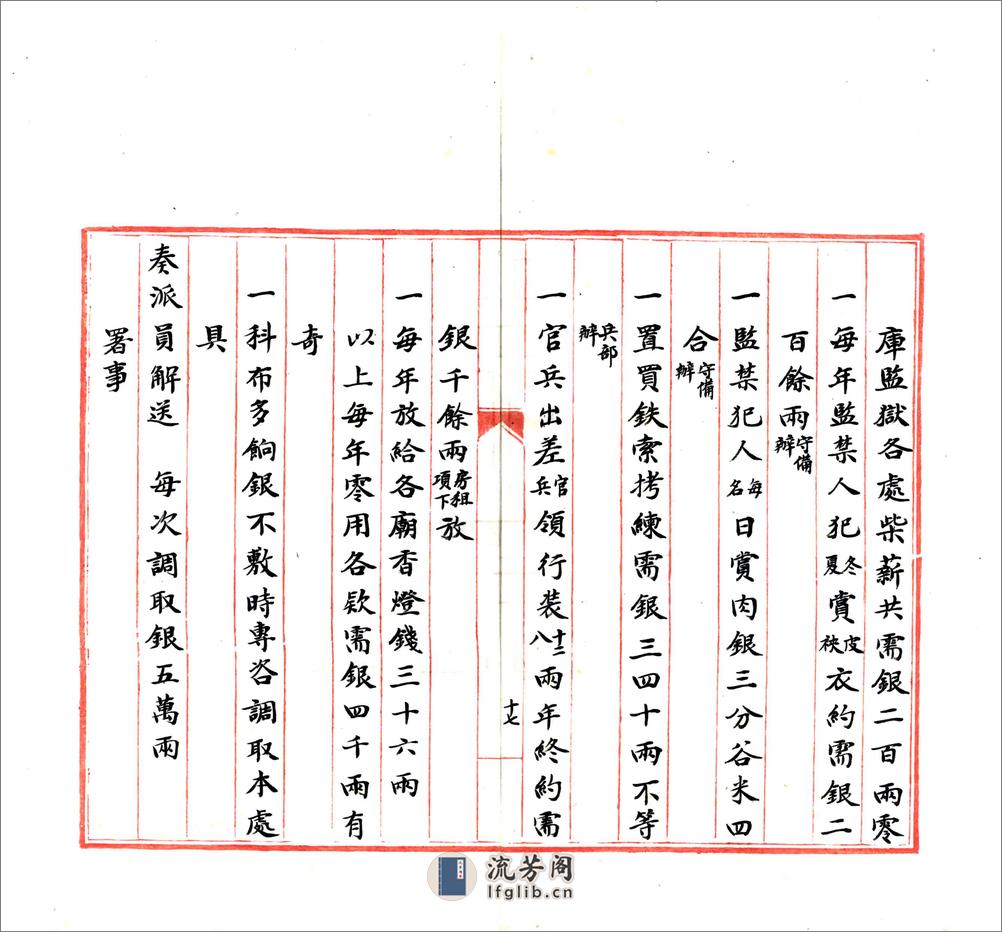 庫監獄各處柴薪共需銀二百兩零
一每年監禁人犯冬夏賞皮袂衣約需銀二
百餘兩守備辦
一監禁犯人每名日賞肉銀三分谷米四
合守備辦
一置買鉄索拷練需銀三四十兩不等
兵部辦
一官兵出差官兵領行裝十二八兩年終約需
銀千餘兩房租項下放
一每年放給各廟香燈錢三十六兩
以上每年零用各欵需銀四千兩有
奇
一科布多餉銀不敷時專咨調取本處
具
奏派員解送 每次調取銀五萬兩
署事
十七
流芳阁
lfglib.cn